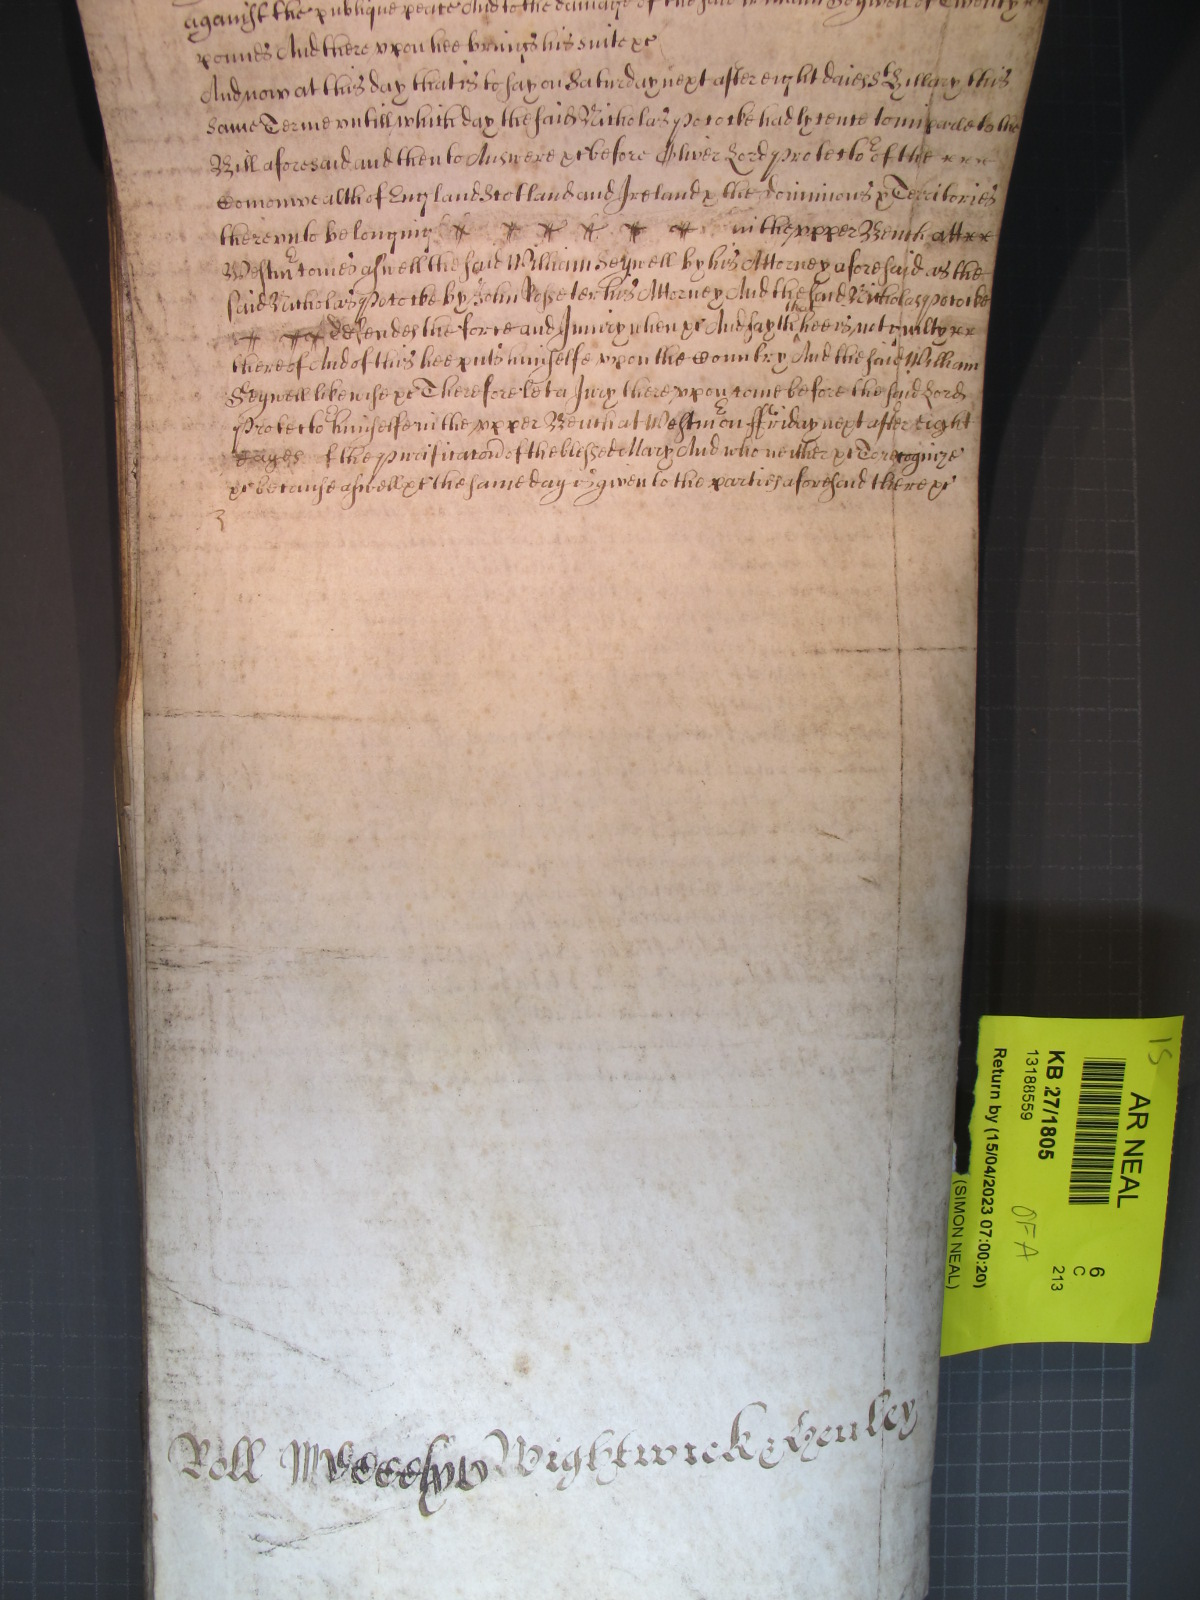 against the publique peace And to the damage of the said William Segwell of Twenty
pounds And there vpon hee brings his suite &c
And now at this day that is to say on Saturday next after eight daies of Hillary this
same Terme vntill which day the said Nicholas Pococke had lycence to imparle to the
Bill aforesaid and then to Answere &c before Oliver Lord Protector of the
Comonwealth of England Scotland and Ireland & the dominions & Territories
therevnto belonging in the vpper Bench att
Westm comes aswell the said William Segwell by his Attorney aforesaid as the
said Nicholas Pococke by John Rosseter his Attorney And the said Nicholas Pococke
defendes the force and Iniury when &c And sayth that hee is not guilty
thereof And of this hee puts himselfe vpon the Country And the said William
Segwell likewise &c Therefore let a Jury there vpon come before the said Lord
Protector himselfe in the vpper Bench at Westm on ffriday next after eight
dayes of the purificacon of the blessed Mary And who neither &c To recognize
&c because aswell &c the same day is given to the parties aforesaid there &c
3
Roll Wightwick & Henley
15
AR NEAL
KB 27/1805
13188559
Return by (15/04/2023 07:00:20)
(SIMON NEAL)
OFA
6
C
213